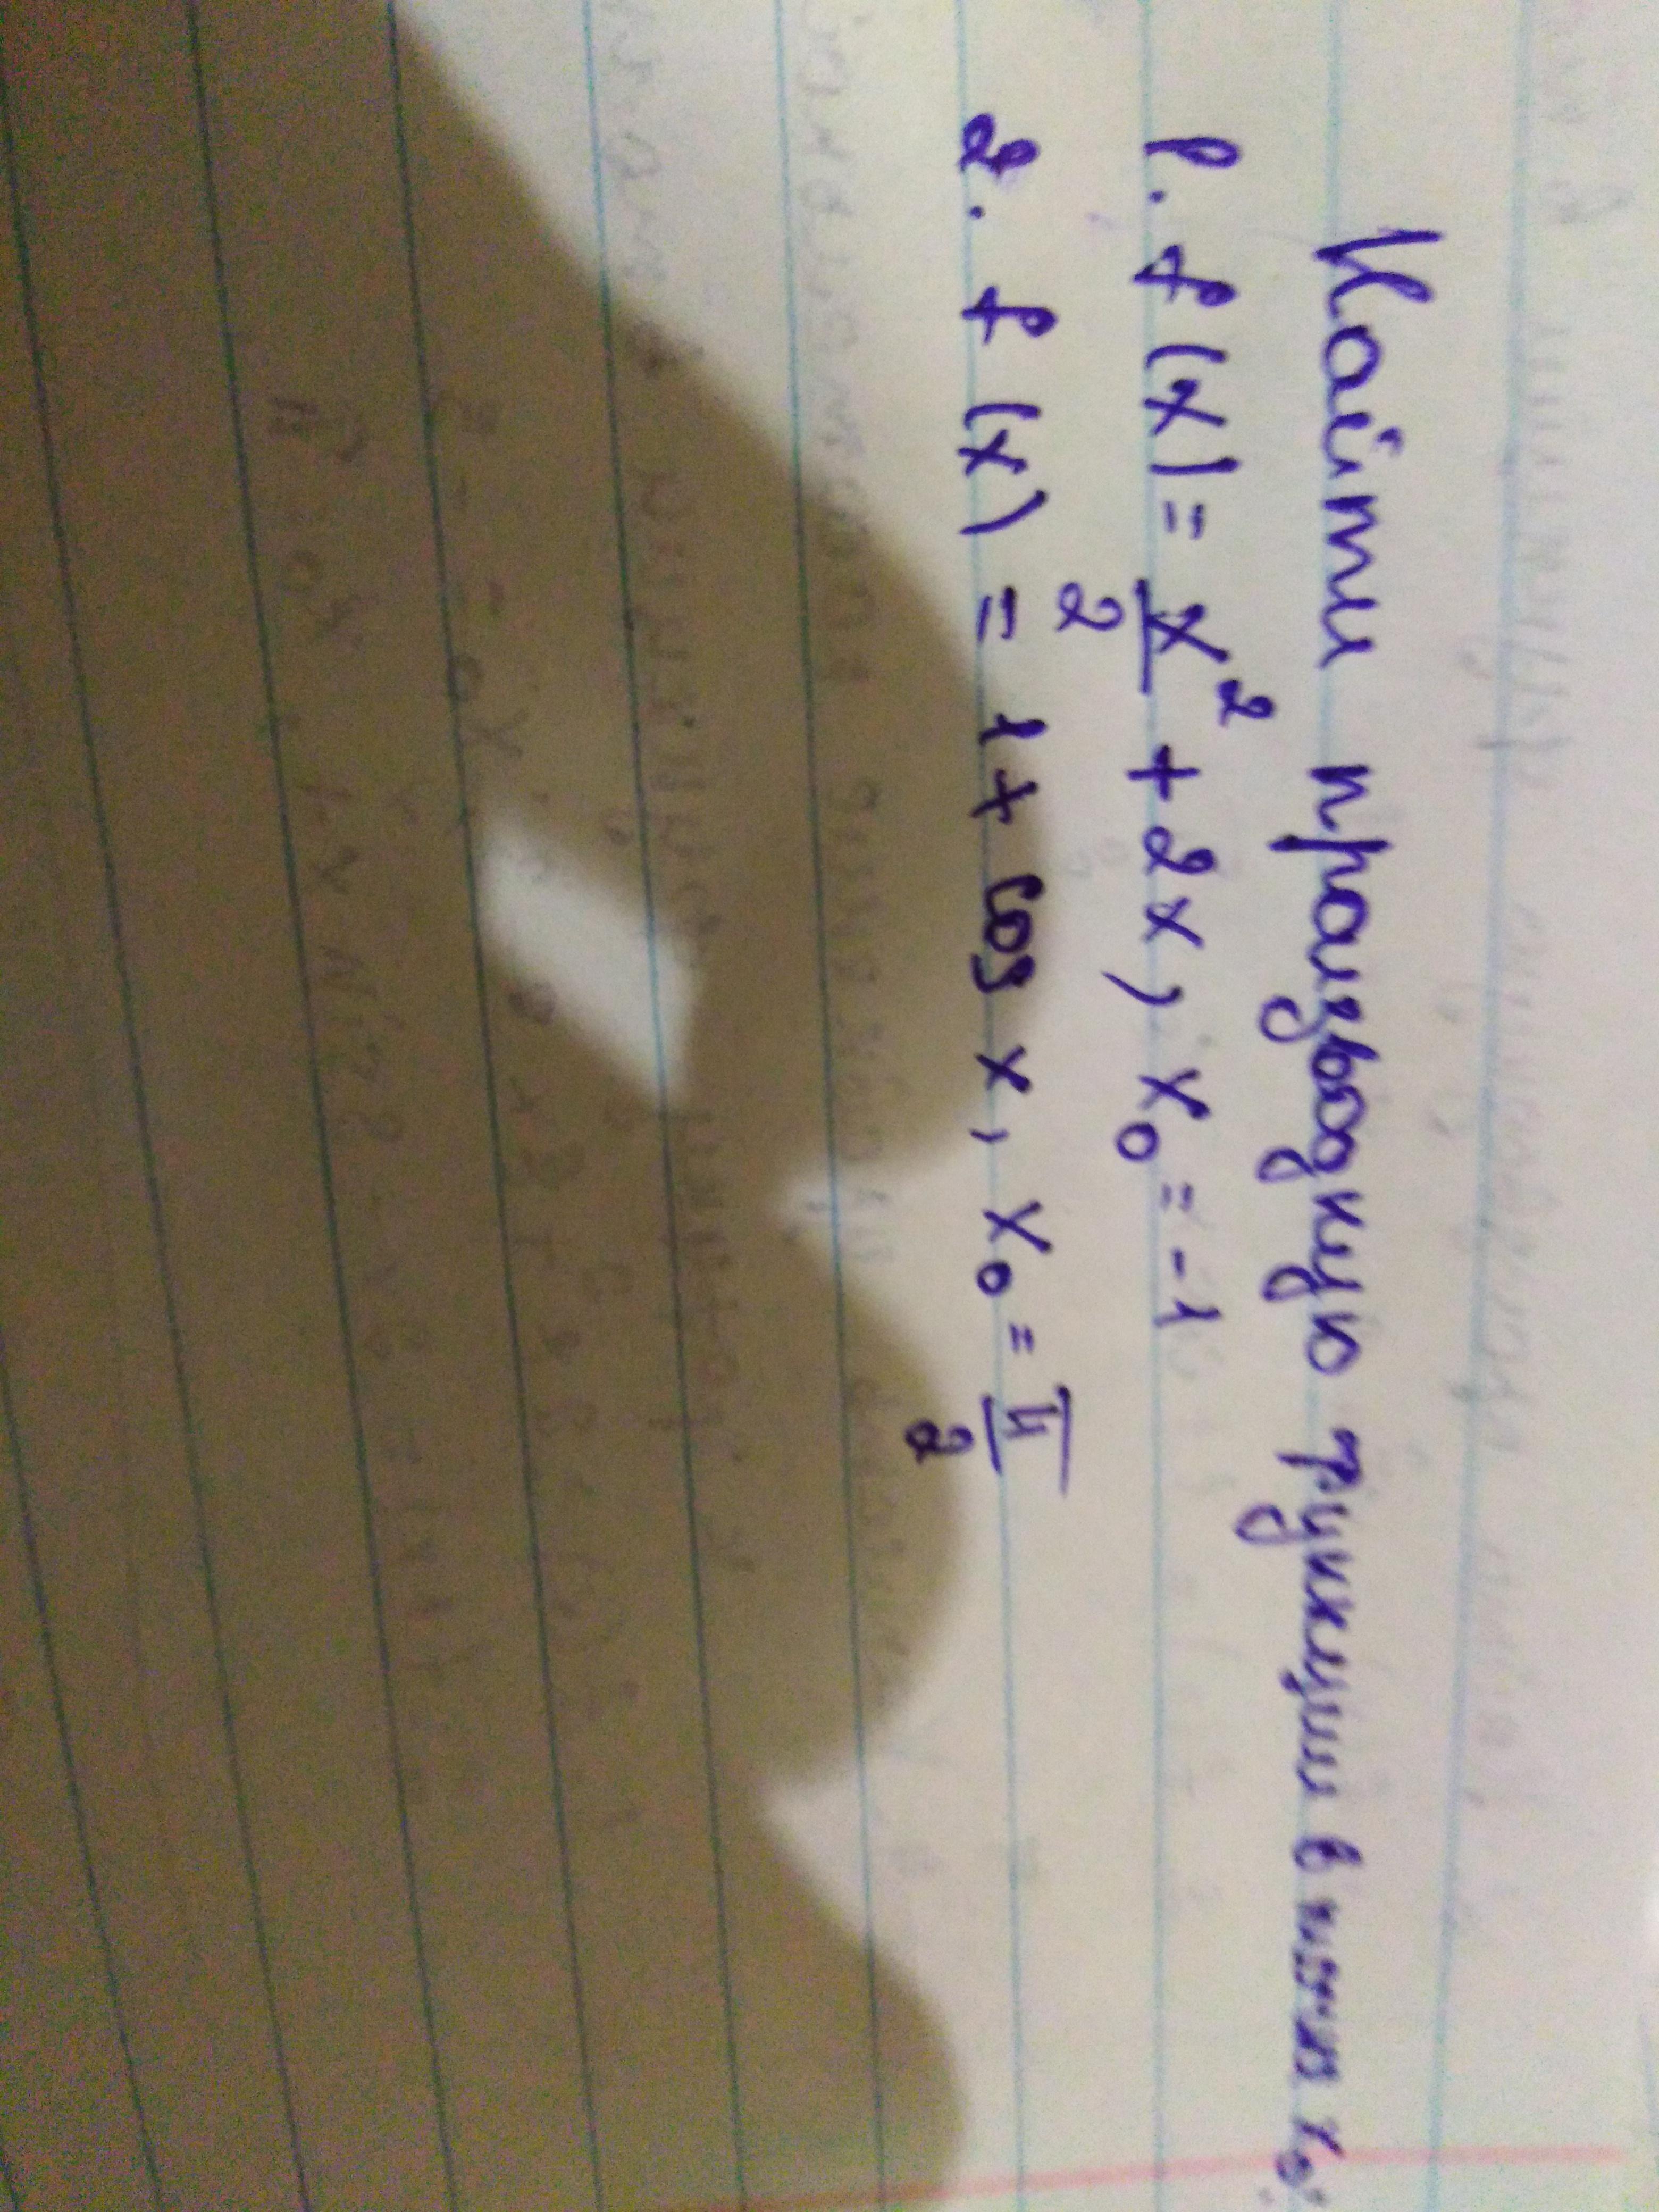 Найти производную функции в точке x₀:
1. f(x) = x²/2 + 2x, x₀ = -1
2. f(x) = 1 + cos x, x₀ = π/2